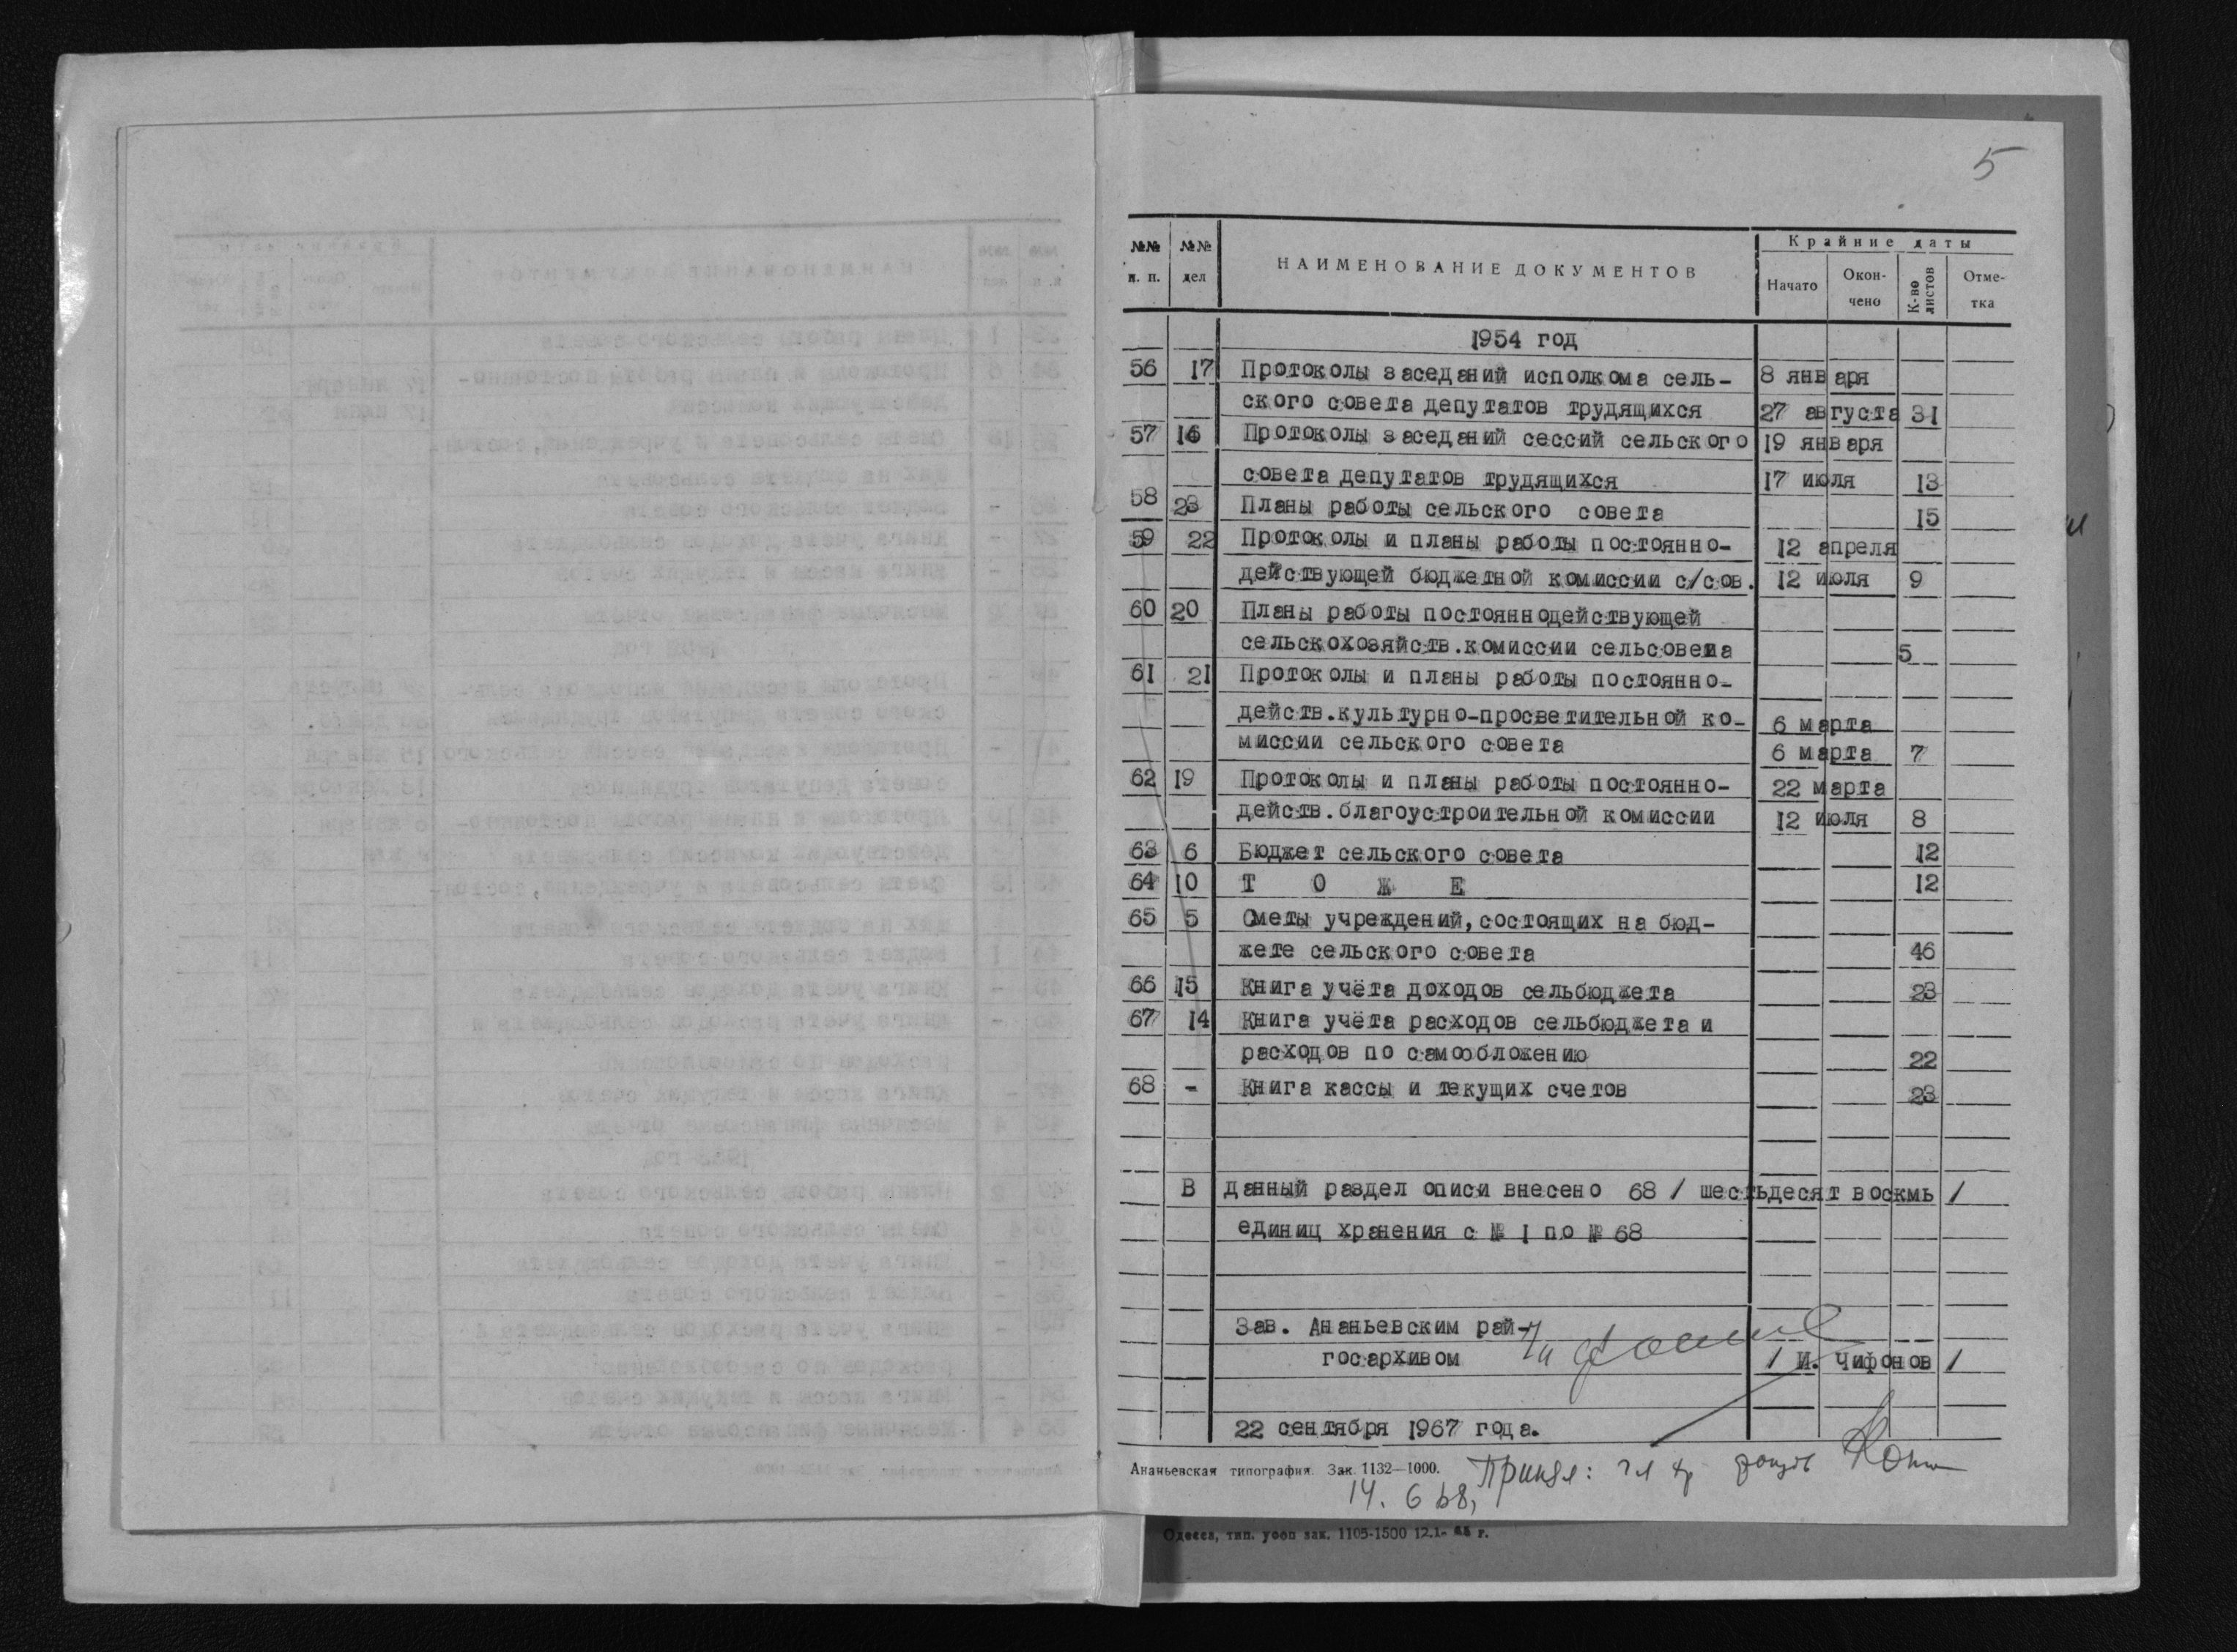 5
№№ №№ НАИМЕНОВАНИЕ ДОКУМЕНТОВ Крайние даты
п. п. дел Начато Окон- К-во Отме-
чено листов тка
1954 год
56 17 Протоколы заседаний исполкома сель- 8 января
ского совета депутатов трудящихся 27 августа 31
57 16 Протоколы заседаний сессий сельского 19 января
совета депутатов трудящихся 17 июля 13
58 23 Планы работы сельского совета 15
59 22 Протоколы и планы работы постоянно- 12 апреля
действующей бюджетной комиссии с/сов. 12 июля 9
60 20 Планы работы постояннодействующей
сельскохозяйств.комиссии сельсовета 5
61 21 Протоколы и планы работы постоянно-
действ.культурно-просветительной ко- 6 марта
миссии сельского совета 6 марта 7
62 19 Протоколы и планы работы постоянно- 22 марта
действ.благоустроительной комиссии 12 июля 8
63 6 Бюджет сельского совета 12
64 10 Т О Ж Е 12
65 5 Сметы учреждений,состоящих на бюд-
жете сельского совета 46
66 15 Книга учёта доходов сельбюджета 23
67 14 Книга учёта расходов сельбюджета и
расходов по самообложению 22
68 - Книга кассы и текущих счетов 23
В данный раздел описи внесено 68 / шестьдесят воскмь /
единиц хранения с № 1 по № 68
Зав. Ананьевским рай-
госархивом / И. Чифонов /
22 сентября 1967 года.
Ананьевская типография. Зак. 1132—1000. Принял:
14. 6 68,
Одесса, тип. уооп зак. 1105-1500 12.1- г.